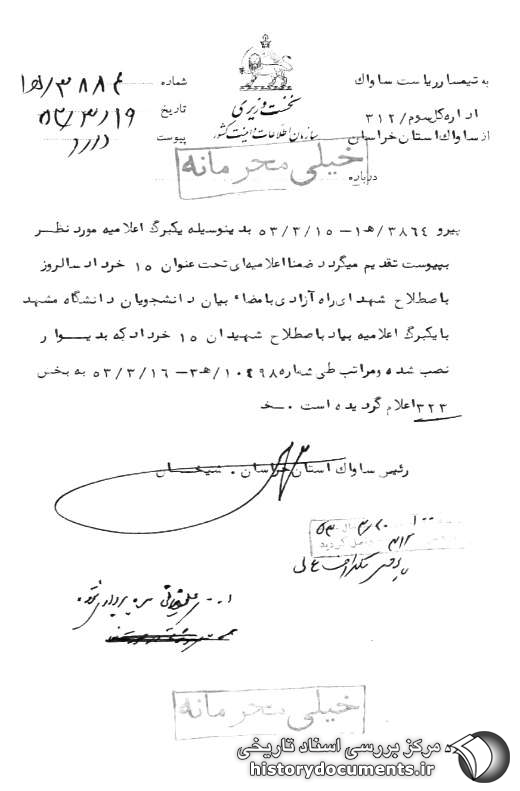 به تیمسار ریاست ساواك
شماره ۳۸۸۴/ه‍۱
نخست وزیری
اداره کل سوم/۳۱۲
تاریخ ۵۳/۳/۱۹
سازمان اطلاعات و امنیت کشور
از ساواك استان خراسان
پیوست دارد
خیلی محرمانه
درباره
پیرو ۳۸۶۴/ه‍۱ – ۵۳/۳/۱۵ بدینوسیله یکبرگ اعلامیه مورد نظر
بپیوست تقدیم میگردد ضمنا اعلامیه‌ای تحت عنوان ۱۵ خرداد سالروز
باصطلاح شهدای راه آزادی بامضاء بیان دانشجویان دانشگاه مشهد
با یکبرگ اعلامیه بیاد باصطلاح شهیدان ۱۵ خرداد که بدیوار
نصب شده و مراتب طی شماره ۱۰۴۹۸/ه‍۳ – ۵۳/۳/۱۶ به بخش
۳۲۳ اعلام گردیده است . سخ
رئیس ساواك استان خراسان . شیخان
۳۱۲
خیلی محرمانه
مرکز بررسی اسناد تاریخی
historydocuments.ir